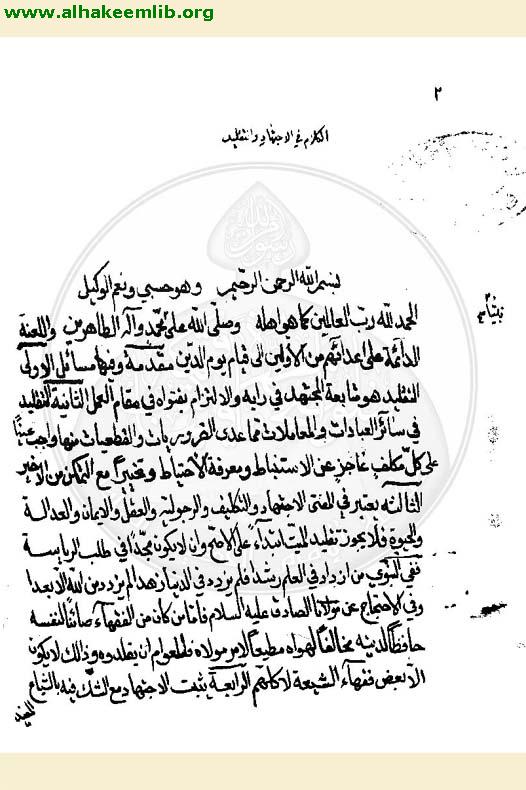 www.alhakeemlib.org
٢
الكلام في الاجتهاد والتقليد
بسم الله الرحمن الرحيم وهو حسبي ونعم الوكيل
الحمد لله رب العالمين كما هو اهله وصلى الله على محمد وآله الطاهرين واللعنة
الدائمة على اعدائهم من الأولين الى قيام يوم الدين مقدمة وفيها مسائل الاولى
التقليد هو متابعة المجتهد في رايه والالتزام بفتواه في مقام العمل الثانية التقليد
في سائر العبادات والمعاملات مما عدى الضروريات والقطعيات منها واجب عيناً
على كل مكلف عاجز عن الاستنباط ومعرفة الاحتياط وتخييراً مع التمكن من الاخير
الثالثه يعتبر في المفتى الاجتهاد والتكليف والرجولية والعقل والايمان والعدالة
والحيوة فلا يجوز تقليد الميت ابتداءً على الاصح وان لا يكون مجدّاً في طلب الرياسة
ففي النبوي من ازداد في العلم رشداً فلم يزدد في الدنيا زهداً لم يزدد من الله الا بعدا
وفي الاحتجاج عن مولانا الصادق عليه السلام فاما من كان من الفقهاء صائناً لنفسه
حافظاً لدينه مخالفاً لهواه مطيعاً لامر مولاه فللعوام ان يقلدوه وذلك لا يكون
الا بعض فقهاء الشيعة لا كلهم الرابعة يثبت الاجتهاد مع الشك فيه بالشياع